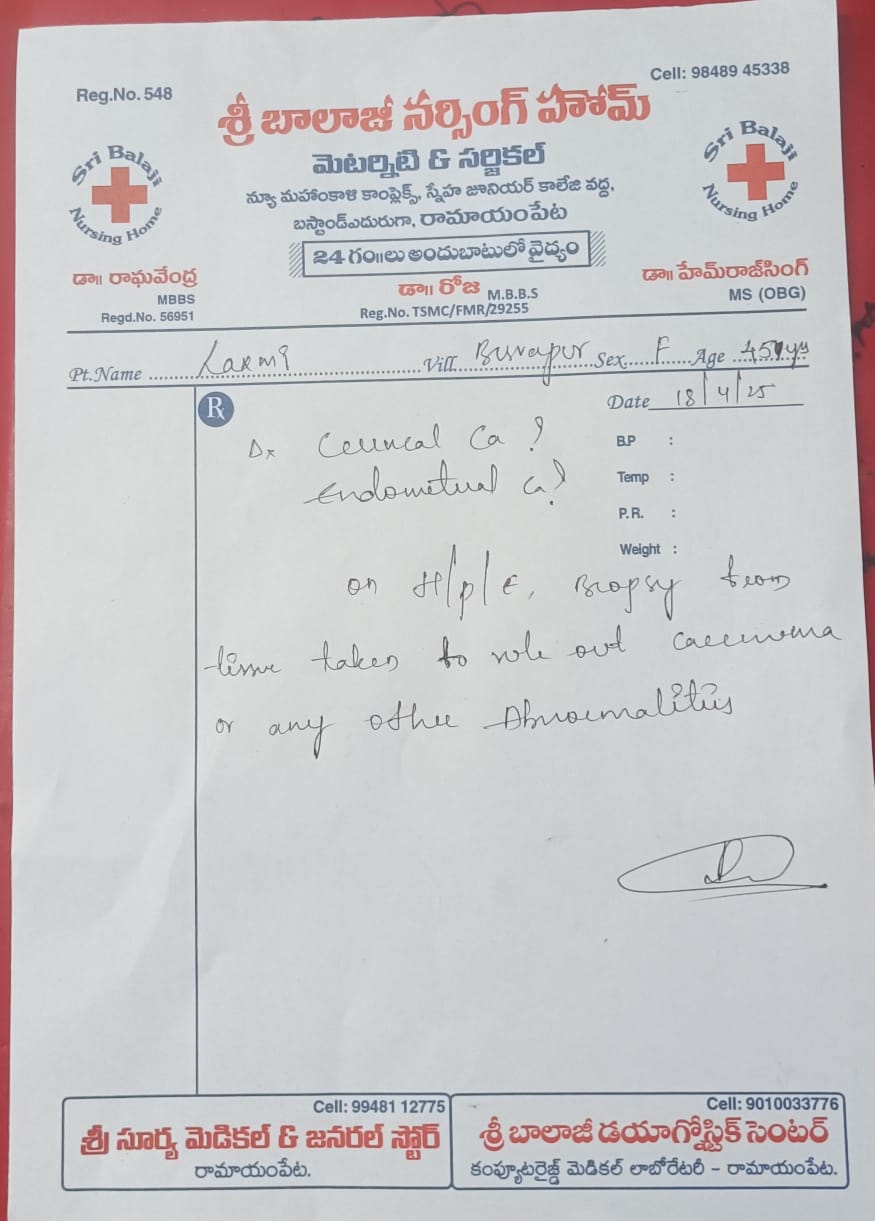 Reg.No. 548
Cell: 98489 45338
శ్రీ బాలాజీ నర్సింగ్ హోమ్
Sri Balaji Nursing Home
మెటర్నిటి & సర్జికల్
Sri Balaji Nursing Home
న్యూ మహంకాళి కాంప్లెక్స్, స్నేహ జూనియర్ కాలేజి వద్ద,
బస్టాండ్ఎదురుగా, రామాయంపేట
24 గం॥లు అందుబాటులో వైద్యం
డా॥ రాఘవేంద్ర
MBBS
Regd.No. 56951
డా॥ రోజ M.B.B.S
Reg.No. TSMC/FMR/29255
డా॥ హేమ్‌రాజ్‌సింగ్
MS (OBG)
Pt.Name Laxmi Vill Sex F Age 45 yrs
Rx
Date 18/4/25
Dx Cervical Ca ?
Endometrial Ca?
B.P :
Temp :
P.R. :
Weight :
on H/P/E, Biopsy from
tissue taken to rule out carcinoma
or any other Abnormalities
Cell: 99481 12775
శ్రీ సూర్య మెడికల్ & జనరల్ స్టోర్
రామాయంపేట.
Cell: 9010033776
శ్రీ బాలాజీ డయాగ్నోస్టిక్ సెంటర్
కంప్యూటరైజ్డ్ మెడికల్ లాబోరేటరీ - రామాయంపేట.